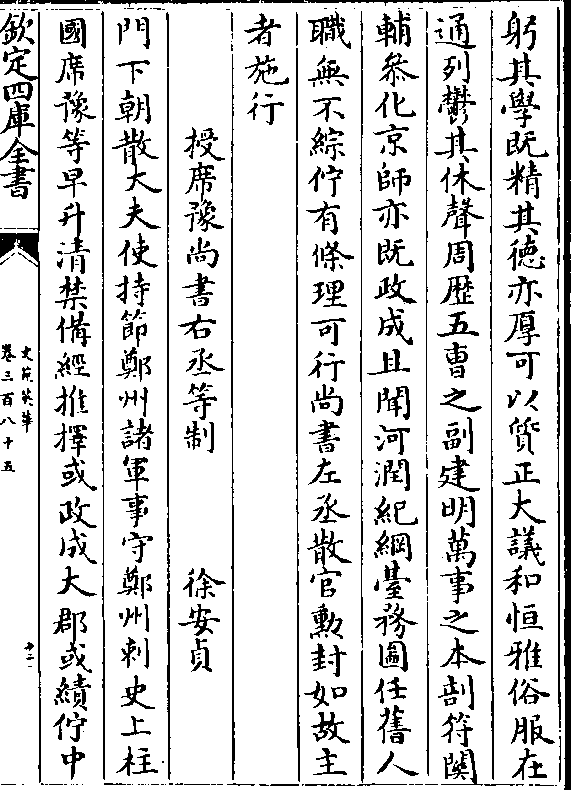 躬其學既精其德亦厚可以質正大議和恒雅俗服在
通列鬱其休聲周歴五曹之副建明萬事之本剖符闗
輔叅化京師亦既政成且聞河潤紀綱臺務圖任舊人
職無不綜佇有條理可行尚書左丞散官勲封如故主
者施行
授席豫尚書右丞等制 徐安貞
門下朝散大夫使持節鄭州諸軍事守鄭州刺史上柱
國席豫等早升清禁備經推擇或政成大郡或績佇中
欽定四庫全書
文苑英華
卷三百八十五
十二